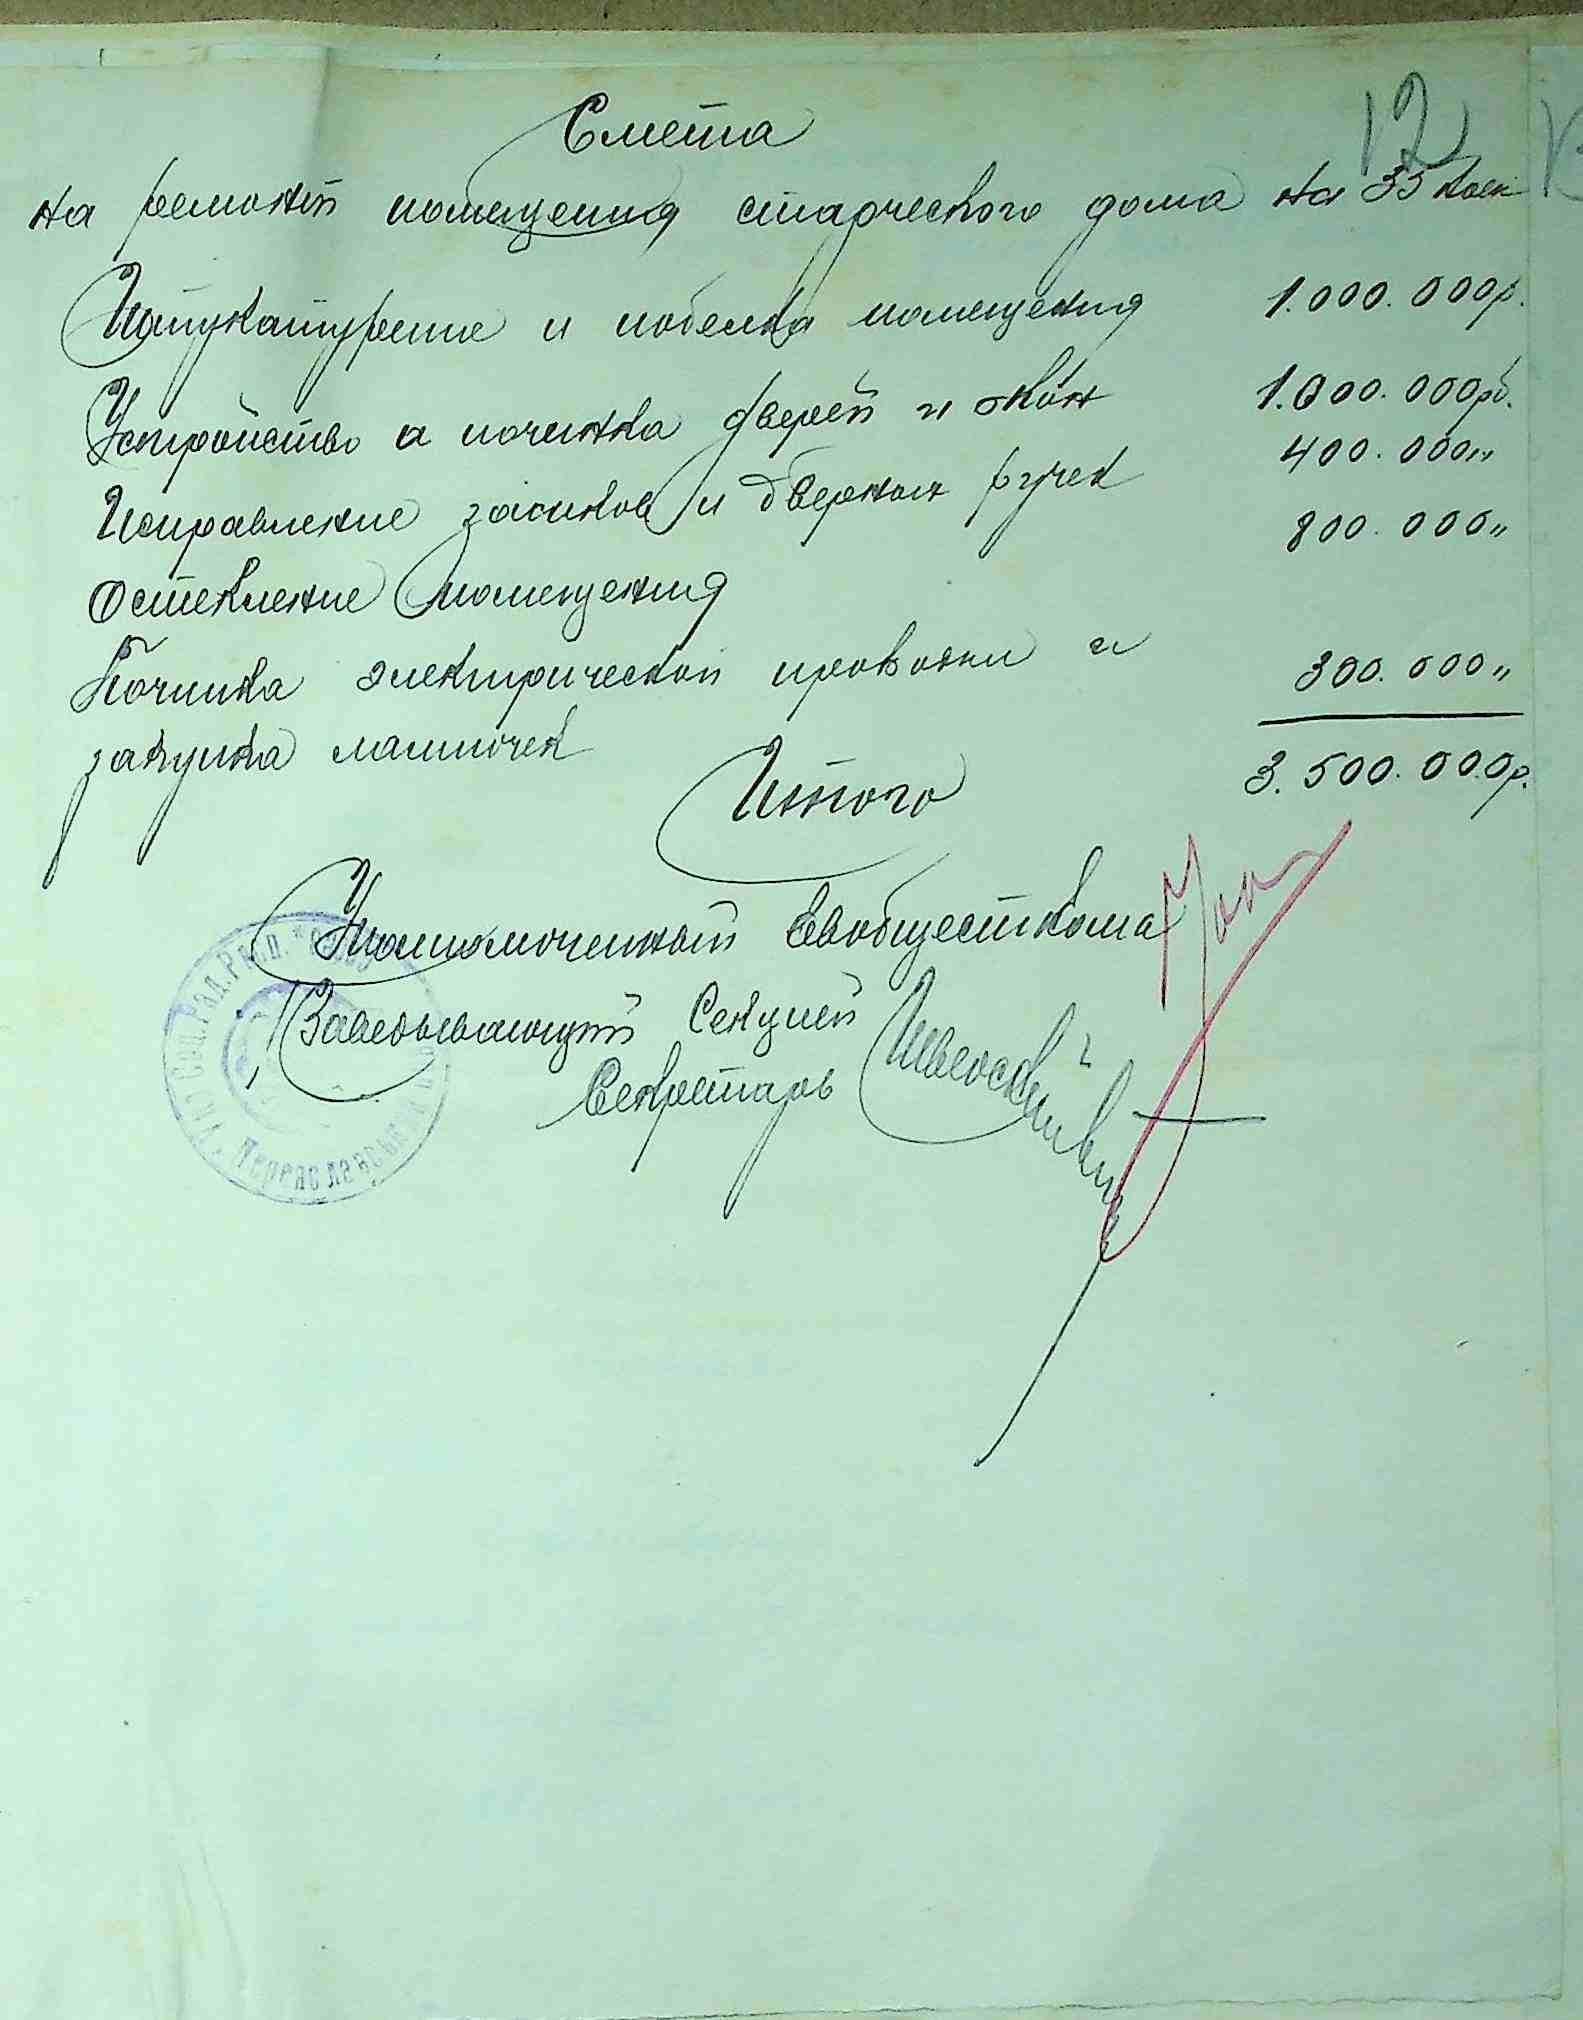 12
Смета
на ремонт помещения старческого дома на 35 коек
Штукатурение и побелка помещения 1.000.000р.
Устройство и починка дверей и окон 1.000.000рб.
Исправление замков и дверных ручек 400.000"
Остекление помещения 800.000"
Починка электрической проводки и
закупка лампочек 300.000"
Итого 3.500.000р.
Уполномоченный Евобщесткома
Заведывающий Секцией
Секретарь
Переяславськ